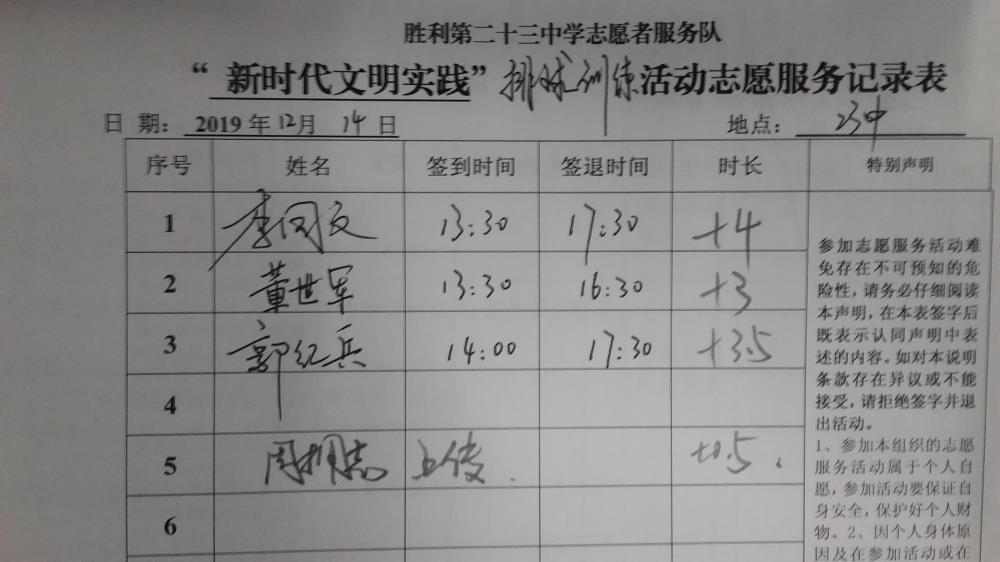 胜利第二十三中学志愿者服务队
“新时代文明实践”排球训练活动志愿服务记录表
日 期: 2019 年 12月 14 日 地点: 23中
序号 姓名 签到时间 签退时间 时长 特别声明
1 李向文 13:30 17:30 +4
2 董世军 13:30 16:30 +3
3 郭纪兵 14:00 17:30 +3.5
4
5 周 志 上传 +0.5
6
参加志愿服务活动难
免存在不可预知的危
险性,请务必仔细阅读
本声明,在本表签字后
既表示认同声明中表
述的内容。如对本说明
条款存在异议或不能
接受,请拒绝签字并退
出活动。
1、参加本组织的志愿
服务活动属于个人自
愿,参加活动要保证自
身安全,保护好个人财
物。2、因个人身体原
因及在参加活动或在